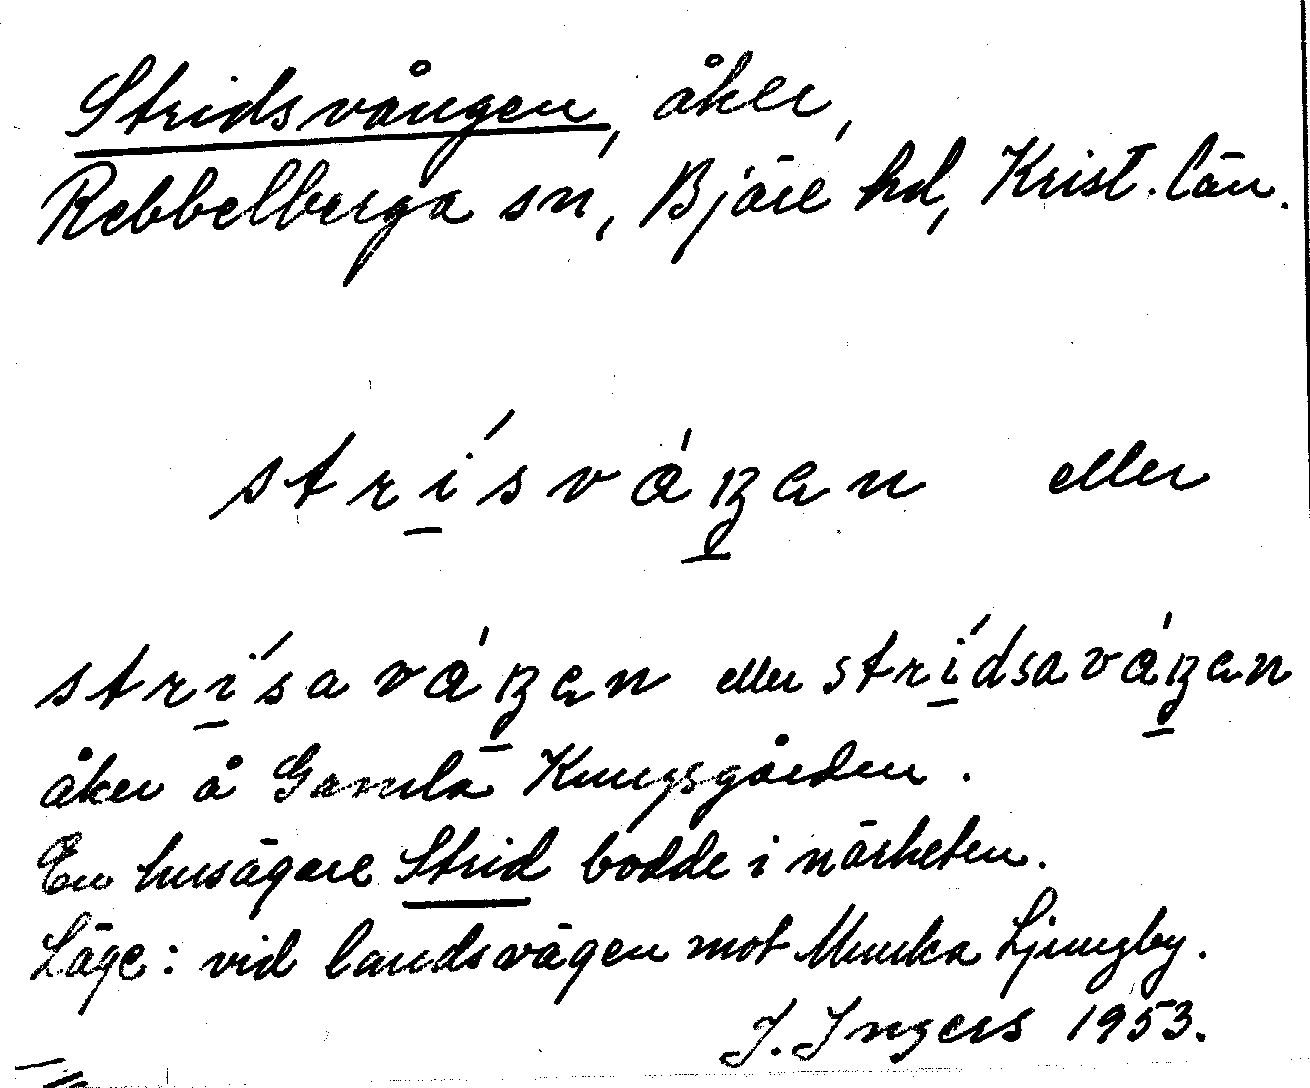 Stridsvången, åker,
Rebbelberga sn, Bjäre hd, Krist. län.
stri̲´sváŋ̲an eller
stri̲´saváŋ̲an eller stri̲´dsaváŋ̲an
åker å Gamla Kungsgården.
En husägare Strid bodde i närheten.
Läge: vid landsvägen mot Munka Ljungby.
J. Ingers 1953.